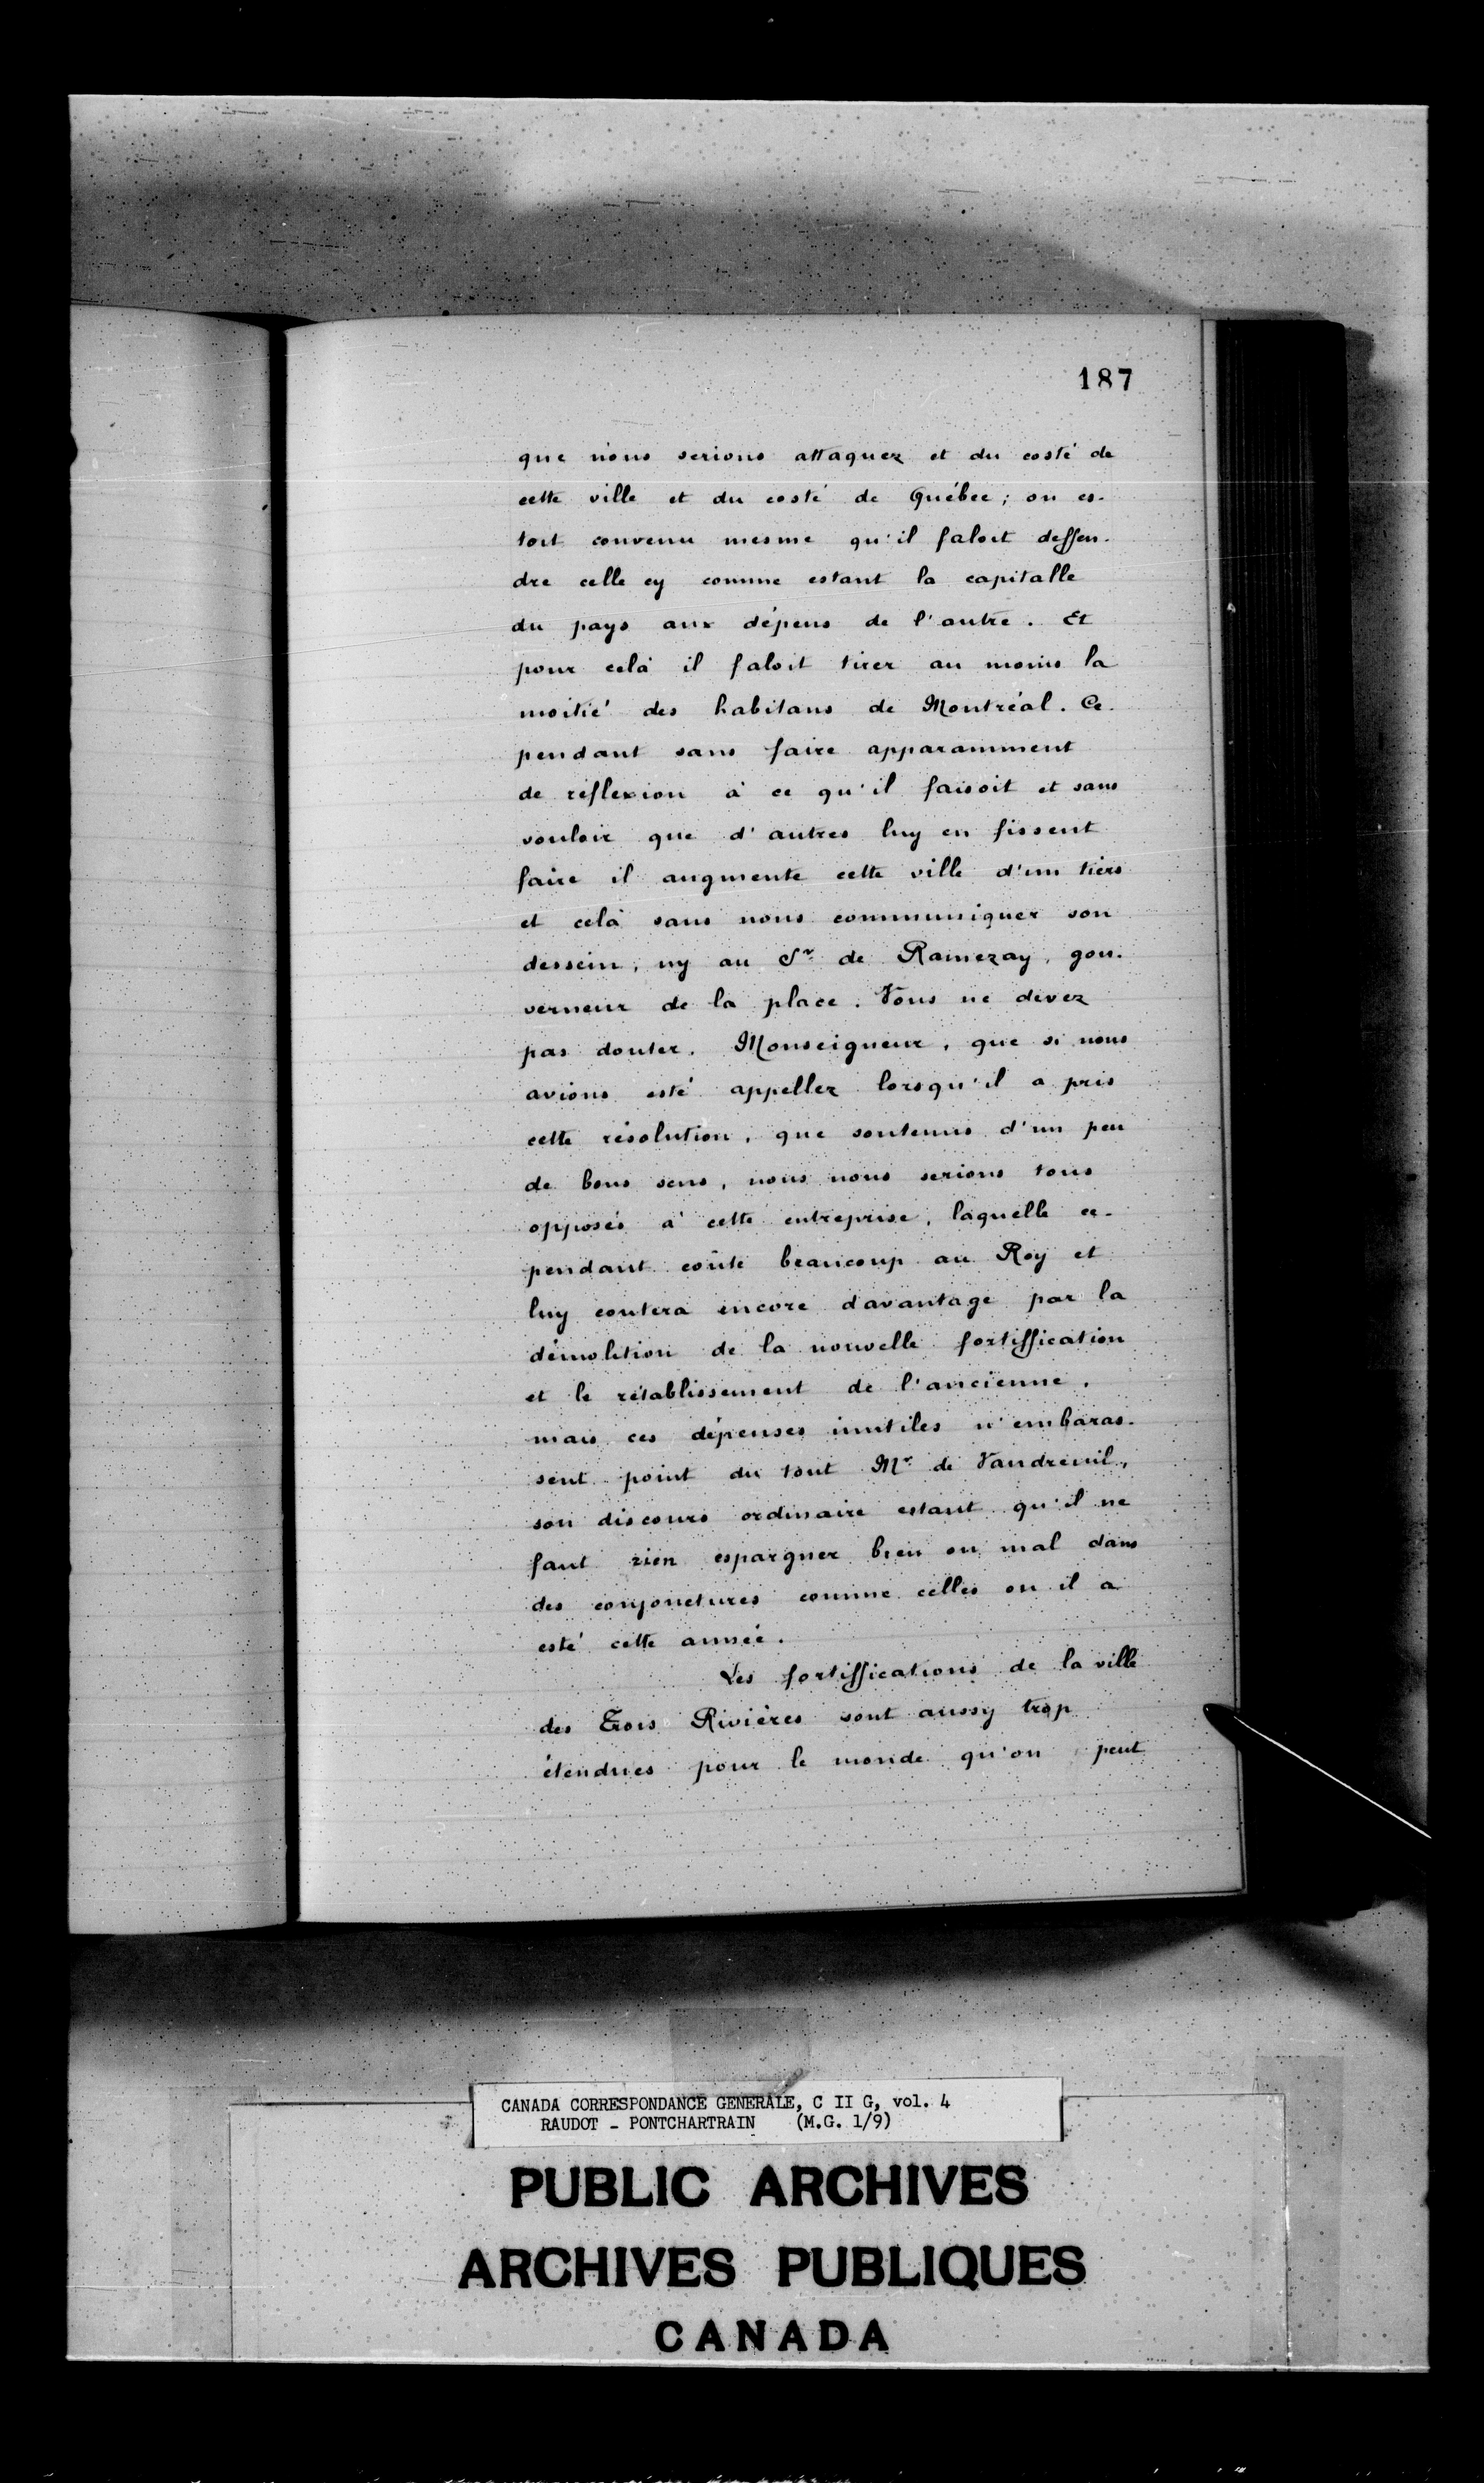 187
que nous serions attaquez et du costé de
cette ville et du costé de Québec; on es-
toit convenu mesme qu'il faloit deffen-
dre celle cy comme estant la capitalle
du pays aux dépens de l'autre. Et
pour celà il faloit tirer au moins la
moitié des habitans de Montréal. Ce-
pendant sans faire apparamment
de réflexion à ce qu'il faisoit et sans
vouloir que d'autres luy en fissent
faire il augmente cette ville d'un tiers
et celà sans nous communiquer son
dessein, ny au Sr de Ramezay, gou-
verneur de la place. Vous ne devez
pas douter, Monseigneur, que si nous
avions esté appellez lorsqu'il a pris
cette résolution, que soutenus d'un peu
de bons sens, nous nous serions tous
opposés à cette entreprise, laquelle ce-
pendant coûte beaucoup au Roy et
luy coutera encore davantage par la
démolition de la nouvelle fortiffication
et le rétablissement de l'ancienne,
mais ces dépenses inutiles n'embaras-
sent point du tout Mr de Vaudreuil,
son discours ordinaire estant qu'il ne
faut rien espargner bien ou mal dans
des conjonctures comme celles ou il a
esté cette année.
Les fortiffications de la ville
des Trois Rivières sont aussy trop
étendues pour le monde qu'on peut
CANADA CORRESPONDANCE GENERALE, C II G, vol. 4
RAUDOT - PONTCHARTRAIN (M.G. 1/9)
PUBLIC ARCHIVES
ARCHIVES PUBLIQUES
CANADA